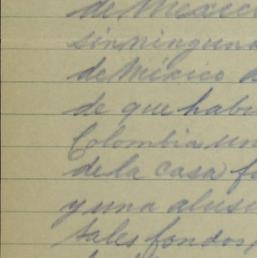 de México
sin ninguna
de México a
de que habi
Colombia un
de la casa fu
y una alusi
tales fondos